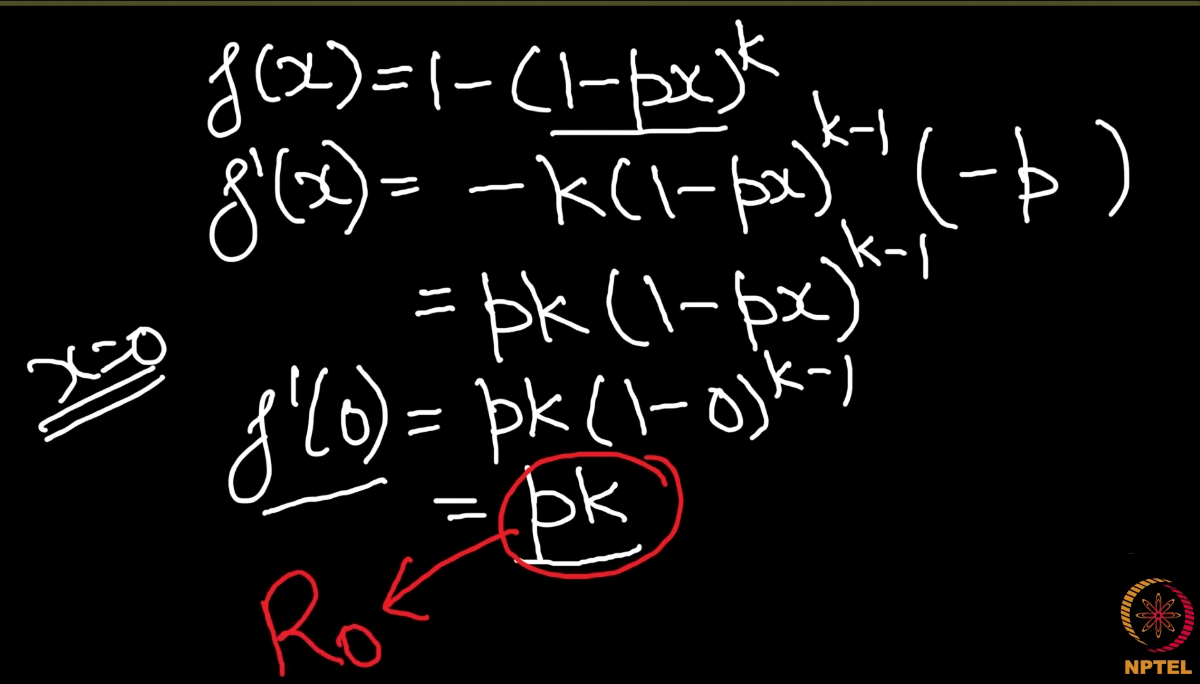 f(x)=1-(1-px)^k
f'(x)= -k(1-px)^{k-1}(-p)
=pk(1-px)^{k-1}
x=0
f'(0)=pk(1-0)^{k-1}
=pk
R0
NPTEL